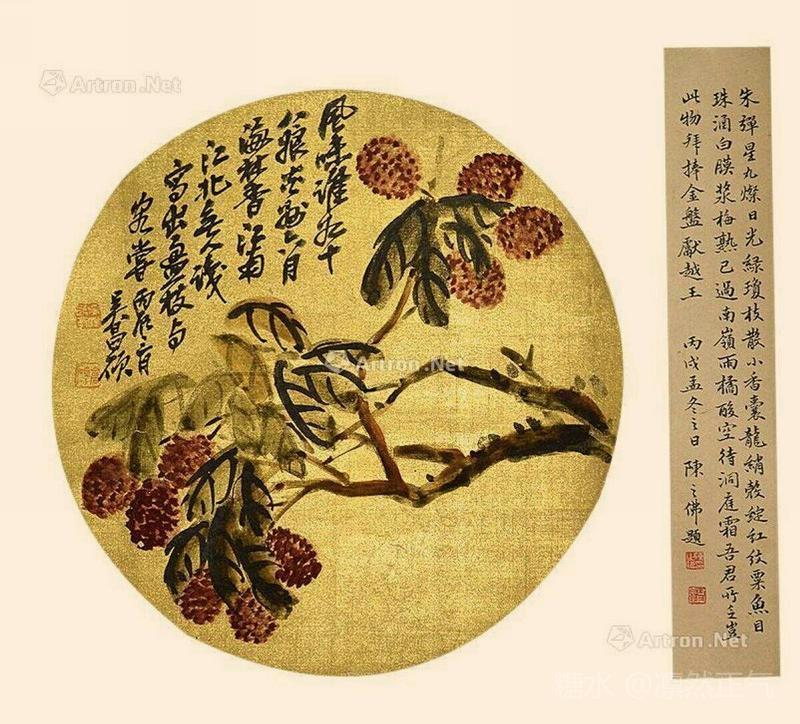 朱彈星丸燦日光綠瓊枝散小香囊龍綃殼綻紅紋粟魚目
珠涵白膜漿梅熟已過南嶺雨橘酸空待洞庭霜吾君所
此物拜捧金盤獻越王 丙戌孟冬之日 陳之佛題
風味誰知十
八娘 六月
海 香江南
江北無人識
寫出 枝与
客嘗 丙辰 月
吳昌碩
Artron.Net
Artron.Net
Artron.Net
Artron.Net
糖水 @凛然正气